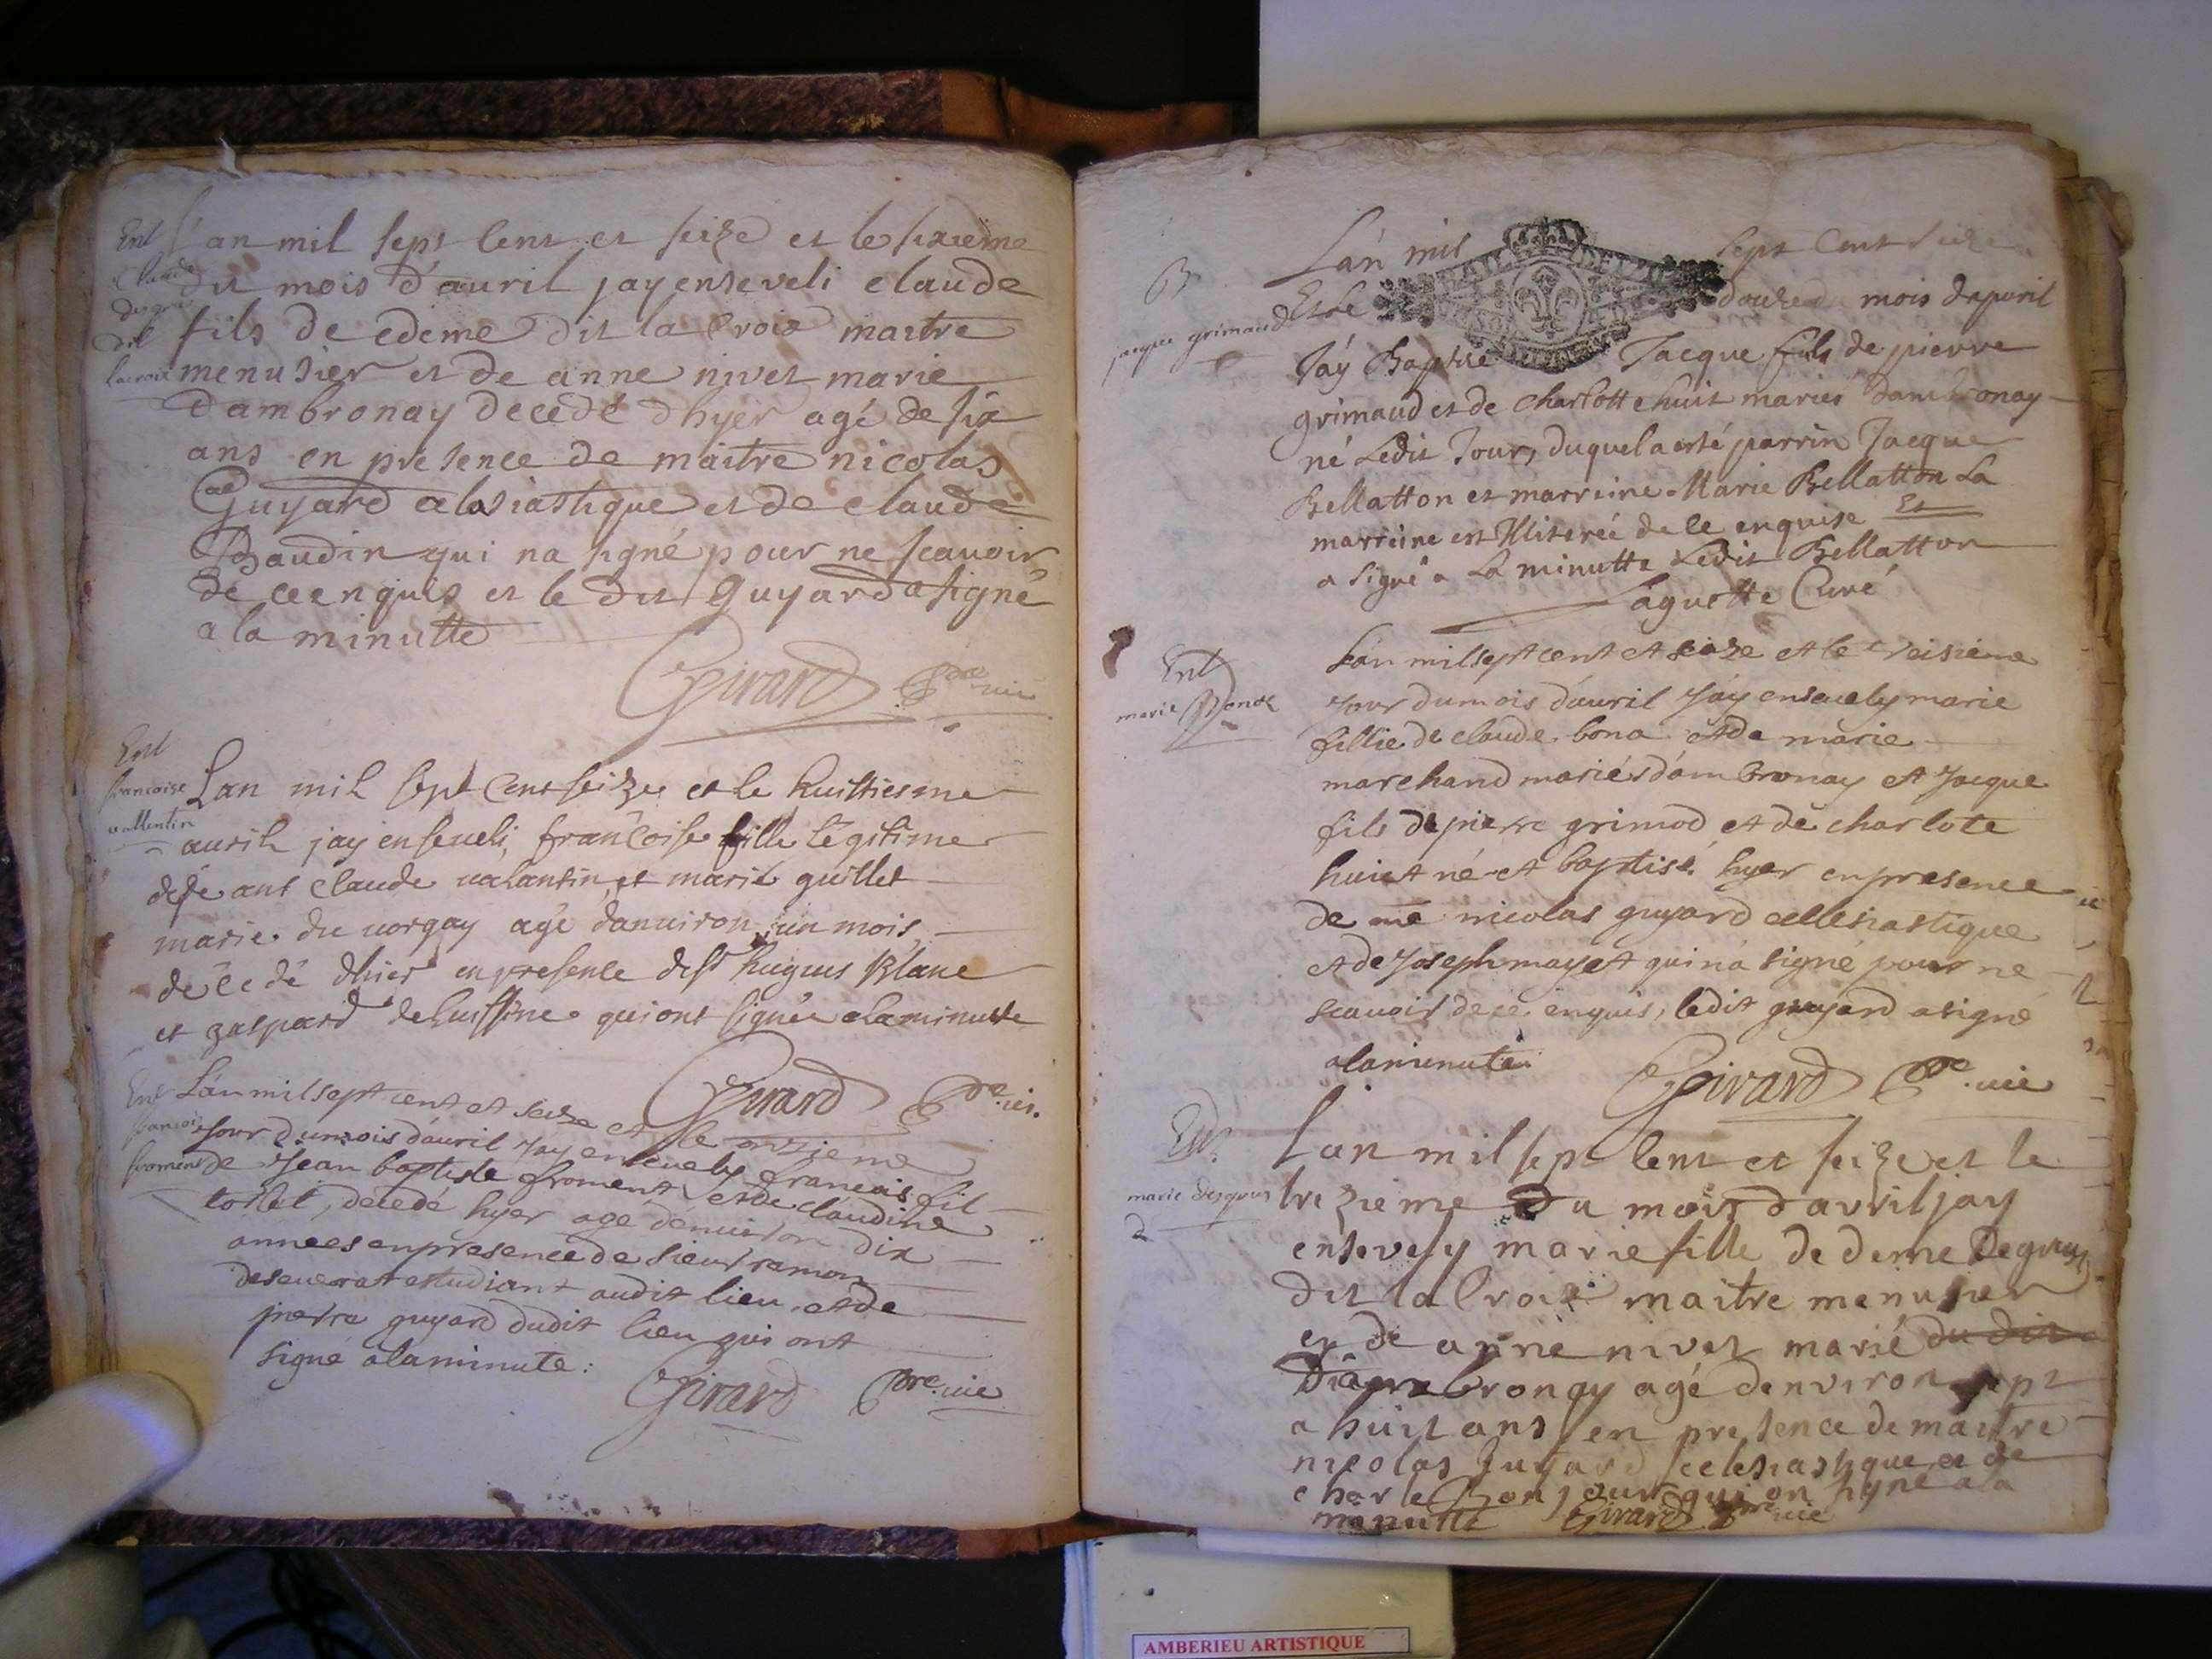 Ent
Claude
dit
lacroix
L'an mil sept Cent et seize et le sixieme
du mois d'auril jay enseveli claude
fils de edeme dit la Croix maitre
menusier et de anne nivet marie
dambronay decedé dhyer agé de six
ans en présence de maitre nicolas
Guyard eclesiastique et de claude
Baudin qui na signé pour ne scauoir
de ce enquis et le dit Guyard a signé
a la minutte
Girard Pbre vic
Ent
francoise
vallentin
Lan mil sept Cent seize et le huittiesme
auril jay enseueli francoise fille légitime
de claude valantin et marie guillet
marie du uorgay agé danuiron un mois
décedé dhier en presence de sr hugues Blanc
et gaspard delussine qui ont signée alaminutte
Girard Pbre vic.
Ent
francois
froment
Lán mil sept cent et seize et le onzieme
jour du mois dáuril Jay enseuely francois fil
de Jean baptiste froment et de claudine
torlet, décedé hyer agé dénuiron dix
annees en presence de sieur ramon
deseuerat estudiant audit lieu et de
pierre guyard dudit lieu qui ont
signé alaminute:
Girard Pbre vic
B
jacques grimaud
Lán mil sept Cent seize
Et le douze du mois dapuril
Jáy Baptisé Jacque fils de pierre
grimaud et de charlotte huit mariés dambronay
né Ledit Jour, duquel a esté parrin Jacque
Bellatton et marreine Marie Bellatton La
marreine est Illiterée de ce enquise Et
a signé a La minutte Ledit Bellatton
Laguette Curé
Ent
marie Bonaz
Lán mil sept cent et seize et le treisieme
jour du mois dáuril Jáy enseuely marie
fillie de claude bona et de marie
marchand mariés dámbronay et Jacque
fils de pierre grimod et de charlote
huict né et baptisé hyer en presence
de me nicolas guyard ecclesiastique
et de Joseph mayet qui ná signé pour ne
scauoir de ce enquis, ledit guyard a signé
alaminute
Girard Pbre vic
Ent
marie
Lan mil sept Cent et seize et le
trezieme du mois d avril jay
ensevely marie fille de deme
dit la Croix maitre menusier
et de anne nivet marié du dit
Diambronay agé denviron sept
a huit ans en presence de maitre
nicolas guyard eclesiastique et de
charle Bonjour qui on signé ala
minutte Girard Pbre vic
AMBERIEU ARTISTIQUE